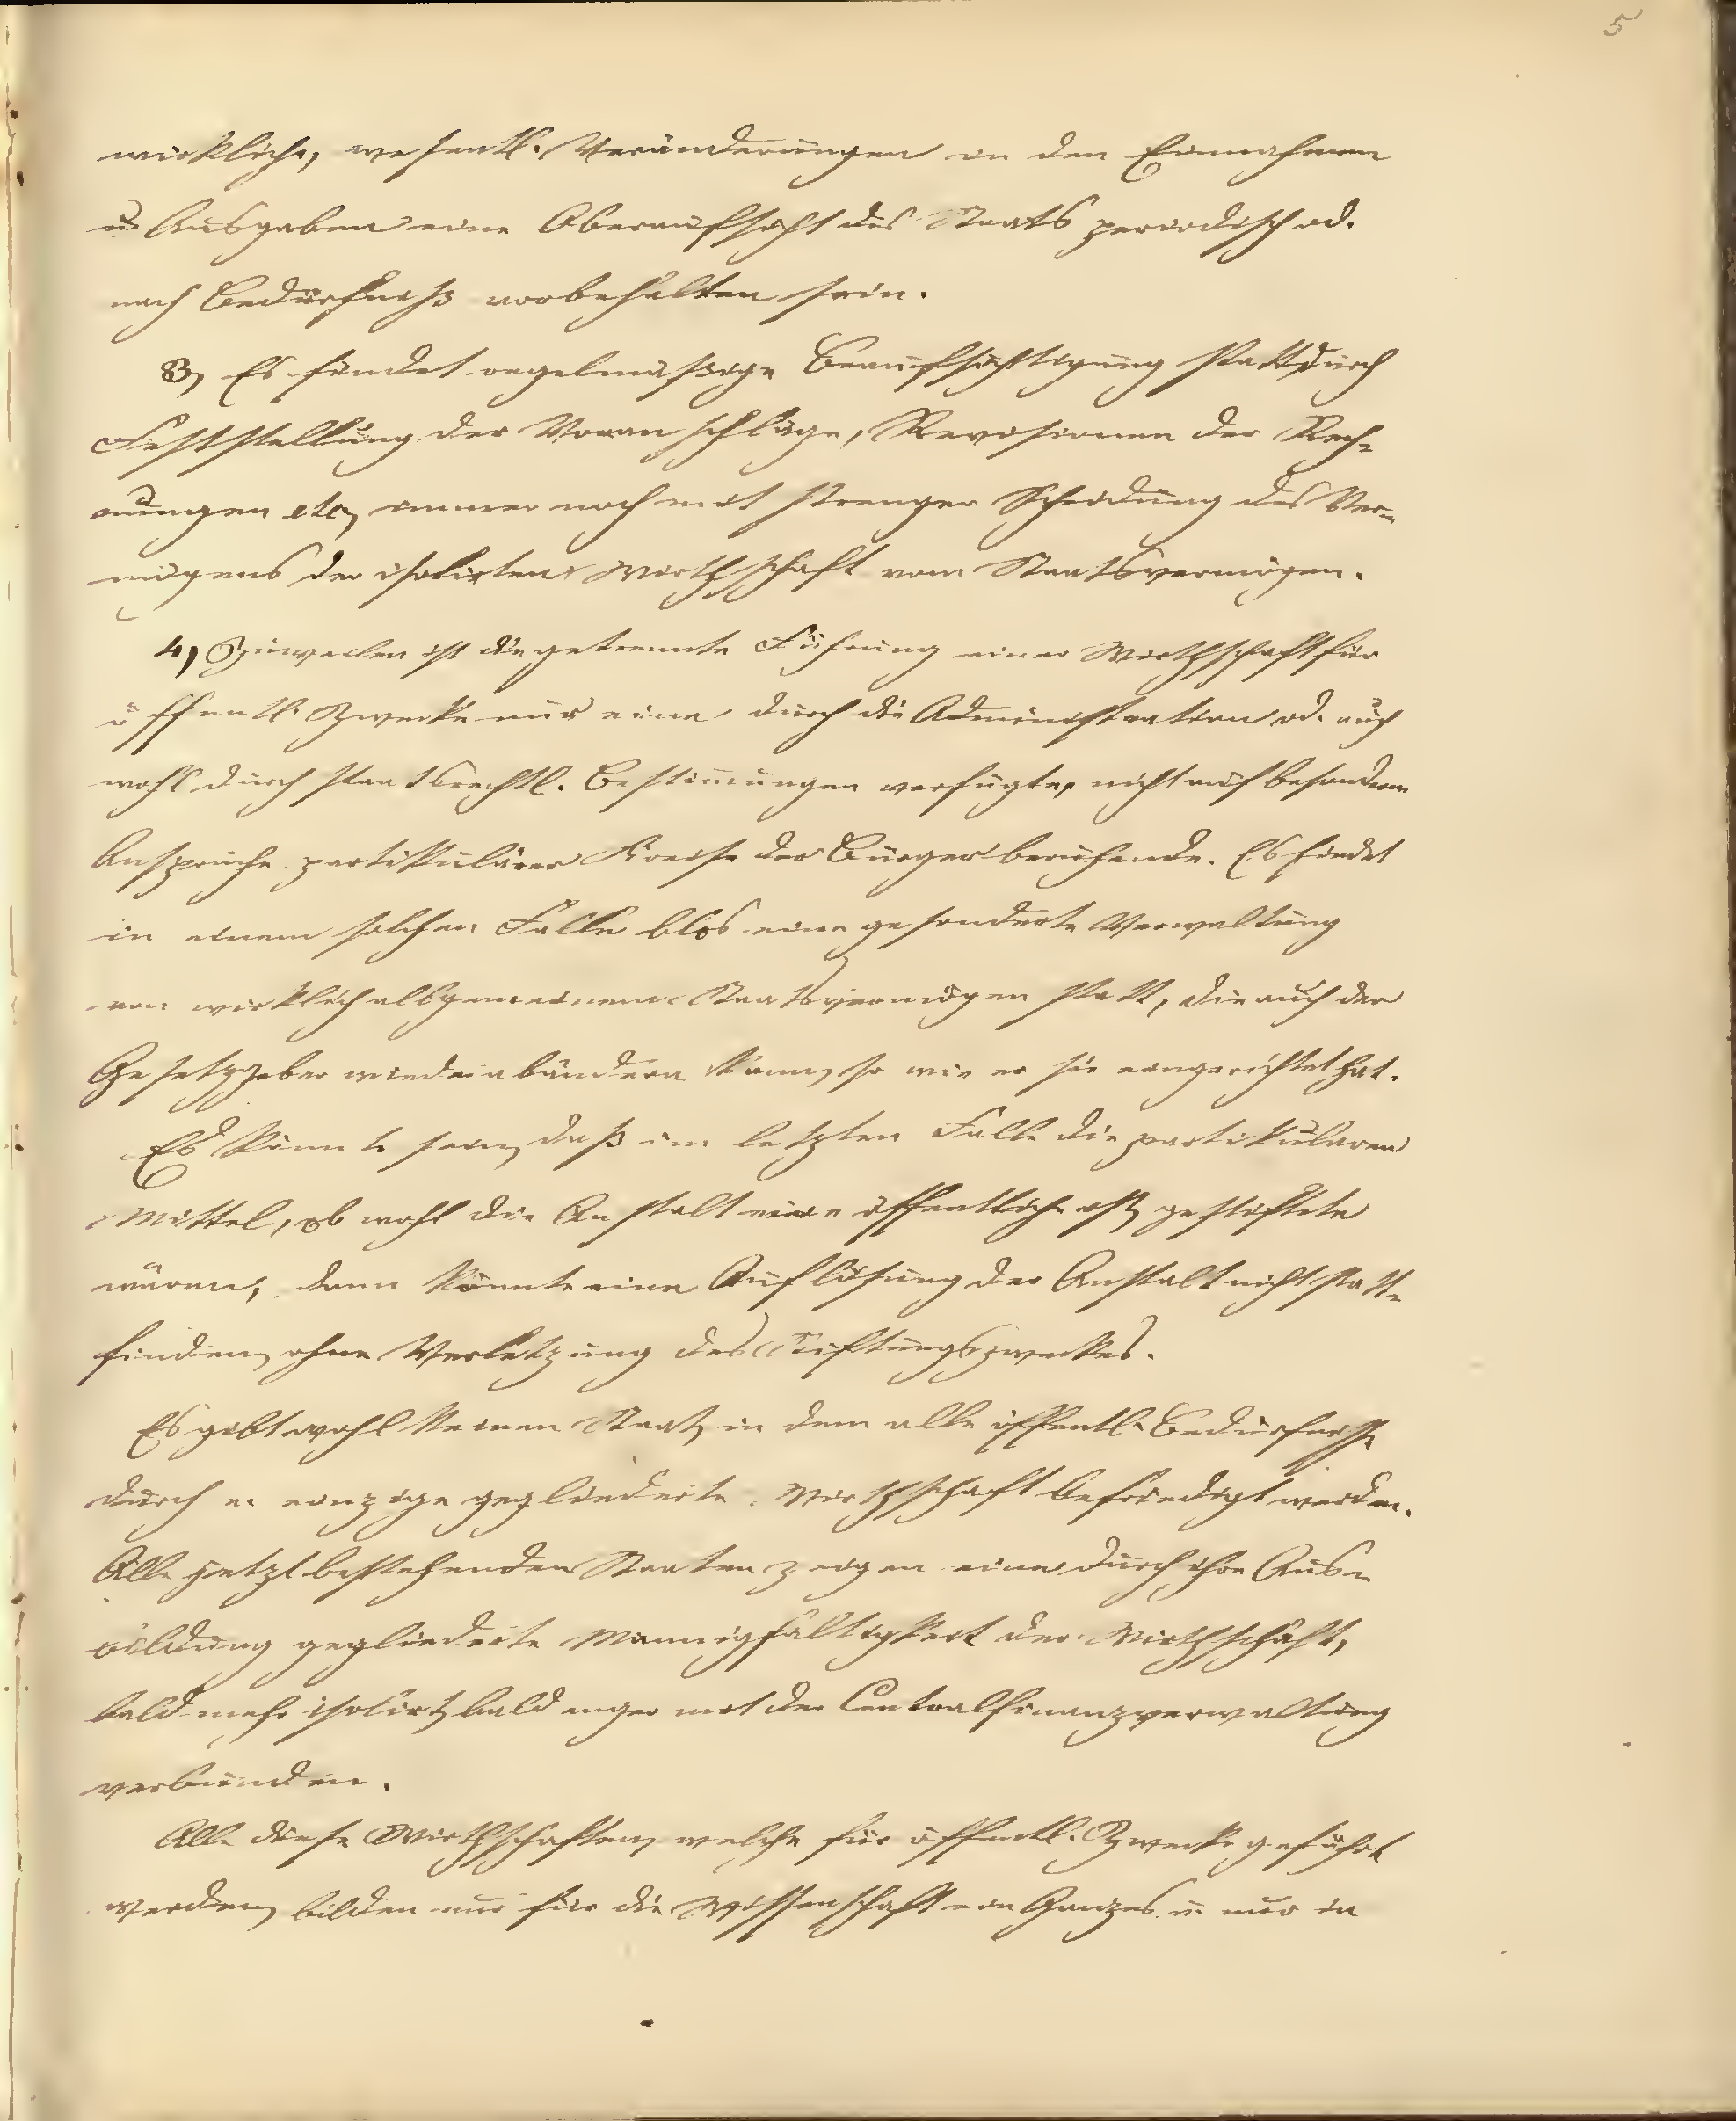 5
wirkliche, wesentl. Veränderungen in den Einnahmen
u. Ausgaben eine Oberaufsicht des Staats periodisch od.
nach Bedürfniß vorbehalten sein.
3, Es findet regelmäßige Beaufsichtigung statt durch
Feststellung der Voranschläge, Revisionen der Rech-
nungen etc, immer noch mit strenger Scheidung des Ver-
mögens der isolirten Wirthschaft vom Staatsvermögen.
4, Zuweilen ist die getrennte Führung einer Wirthschaft für
öffentl. Zwecke nur eine durch die Administration od. auch
wohl durch staatsrechtl. Bestimungen verfügte, nicht auf besondern
Ansprüche partikulärer Kreise der Bürger beruhende. Es findet
in einem solchen Falle blos eine gesonderte Verwaltung
von wirklich allgemeinem Staatsvermögen statt, die auch der
Gesetzgeber wieder abändern kann, so wie er sie eingerichtet hat.
Es könnte sein, daß im letzten Falle die partikularen
Mittel, obwohl die Anstalt eine öffentliche ist, gestiftete
wären, dann könnte eine Auflösung der Anstalt nicht statt-
finden, ohne Verletzung des Stiftungszweckes.
Es gibt wohl keinen Staat, in dem alle öffentl. Bedürfnisse
durch e. einzige gegliederte Wirthschaft befriedigt werden.
Alle jetzt bestehenden Staaten zeigen eine durch ihre Aus-
bildung gegliederte Mannigfaltigkeit der Wirthschaft,
bald mehr isolirt, bald enger mit der Centralfinanzverwaltung
verbunden.
Alle diese Wirthschaften, welche für öffentl. Zwecke geführt
werden, bilden nur für die Wissenschaft ein Ganzes u. nur in